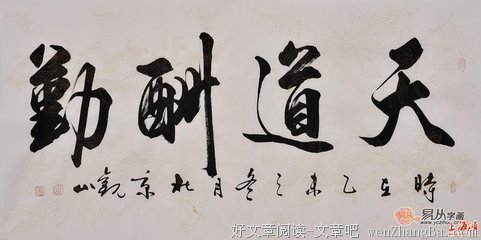 天道酬勤
時在乙未之冬月北京觀山
易从字画
好文章阅读-文章吧 wenZhangBa.